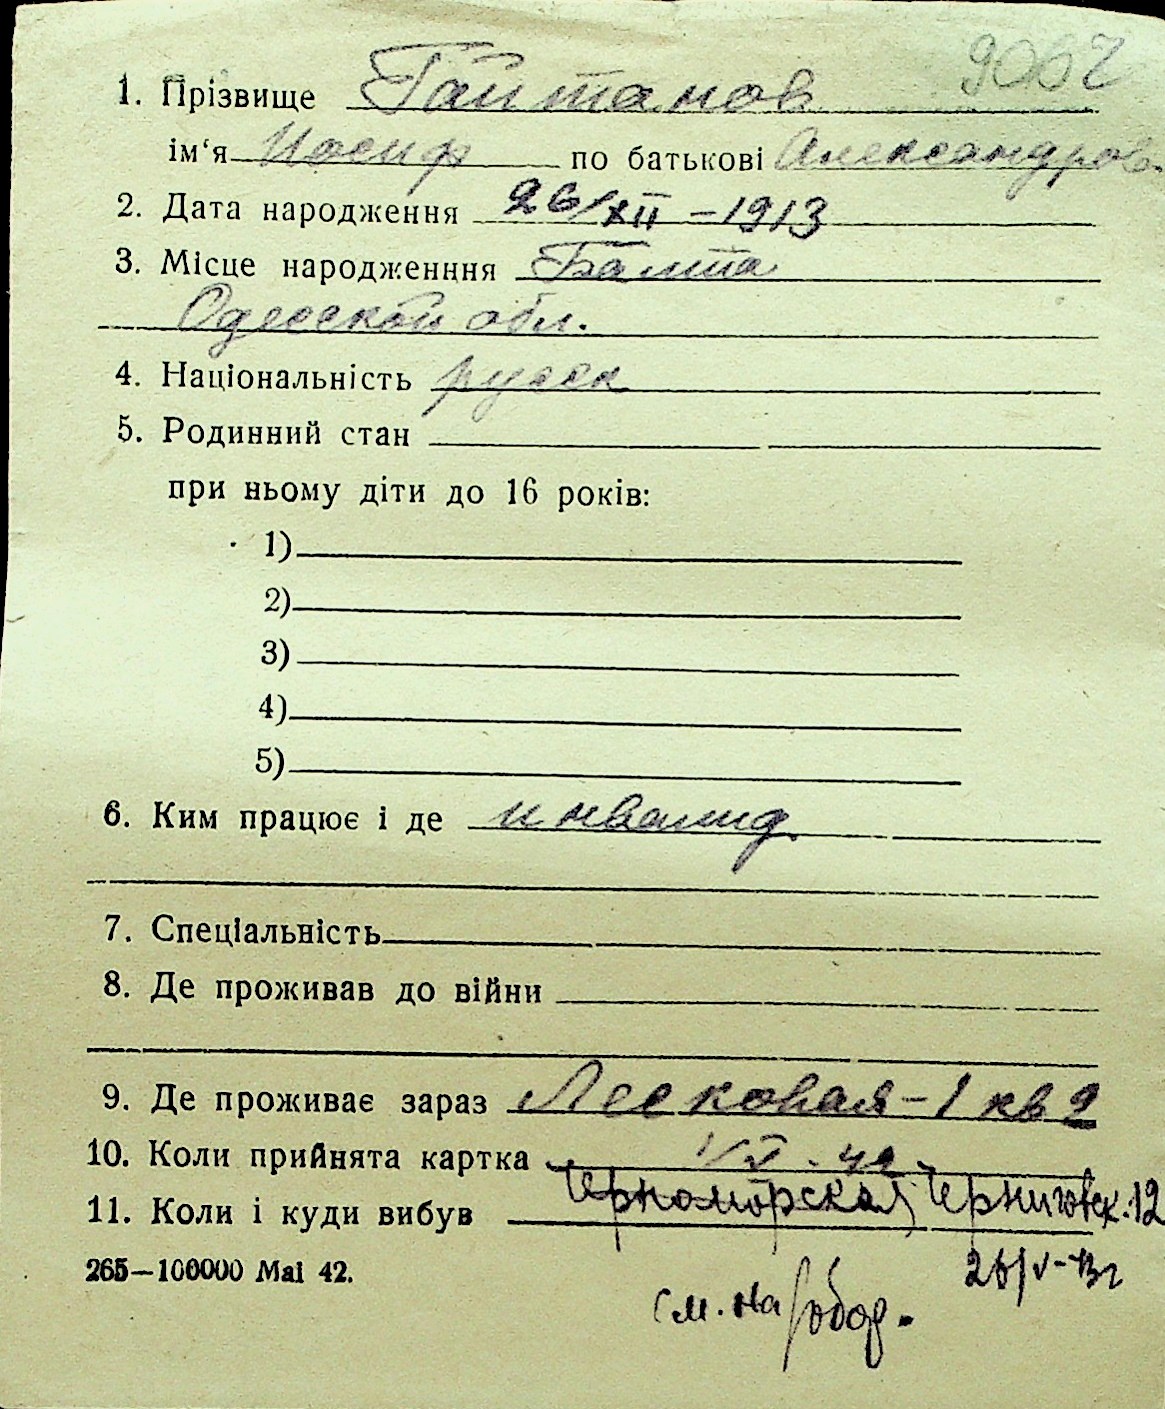 9067
1. Прізвище Гайтанов
ім‘я Иосиф по батькові Александров.
2. Дата народження 26/XII – 1913
3. Місце народженння Балта
Одесской обл.
4. Національність русск
5. Родинний стан
при ньому діти до 16 років:
1)
2)
3)
4)
5)
6. Ким працює і де инвалид
7. Спеціальність
8. Де проживав до війни
9. Де проживає зараз Лесковая – 1 кв 2
10. Коли прийнята картка 1/V - 42
11. Коли і куди вибув Черноморская Черниговск. 12
265—100000 Mai 42.
26/V - 43 г
См. на обор.